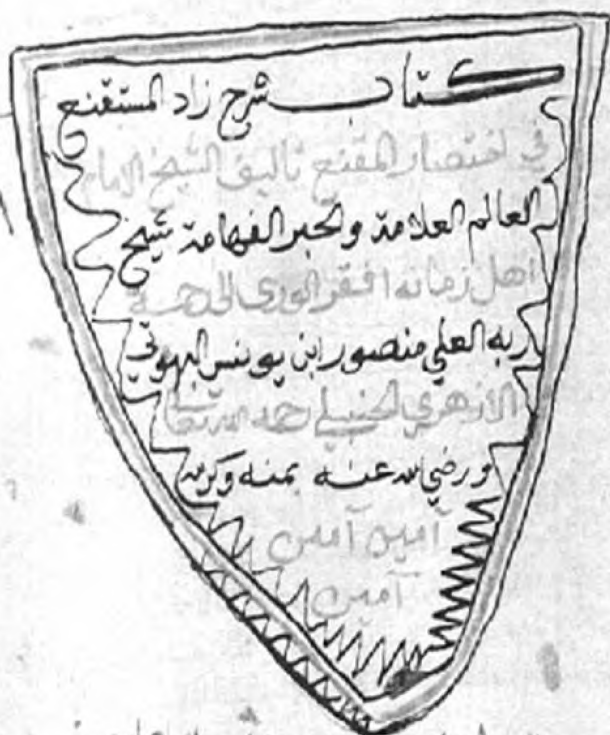 كتاب شرح زاد المستقنع
في اختصار المقنع تاليف الشيخ الامام
العالم العلامة والحبر الفهامة شيخ
اهل زمانه افقر الورى الى رحمة
ربه العلي منصور ابن يونس البهوتي
الازهري الحنبلي رحمه الله تعالى
ورضي الله عنه بمنه وكرمه
آمين آمين
آمين